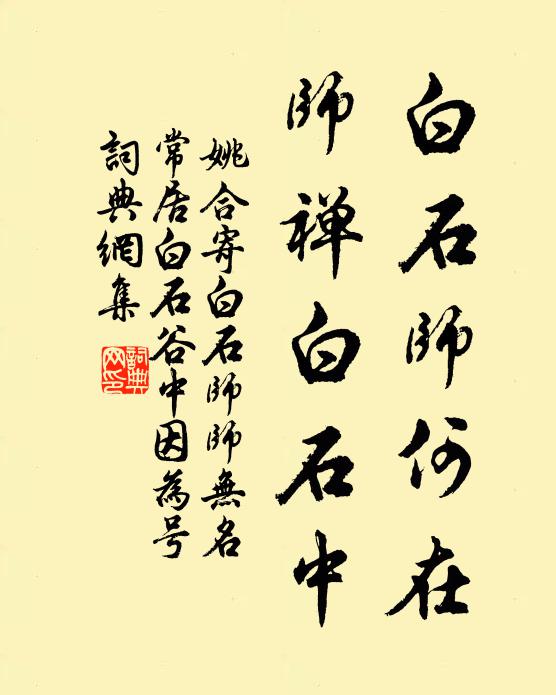 白石師何在
師禅白石中
姚合寄白石師師無名
常居白石谷中因為号
詞典網集
詞典网印